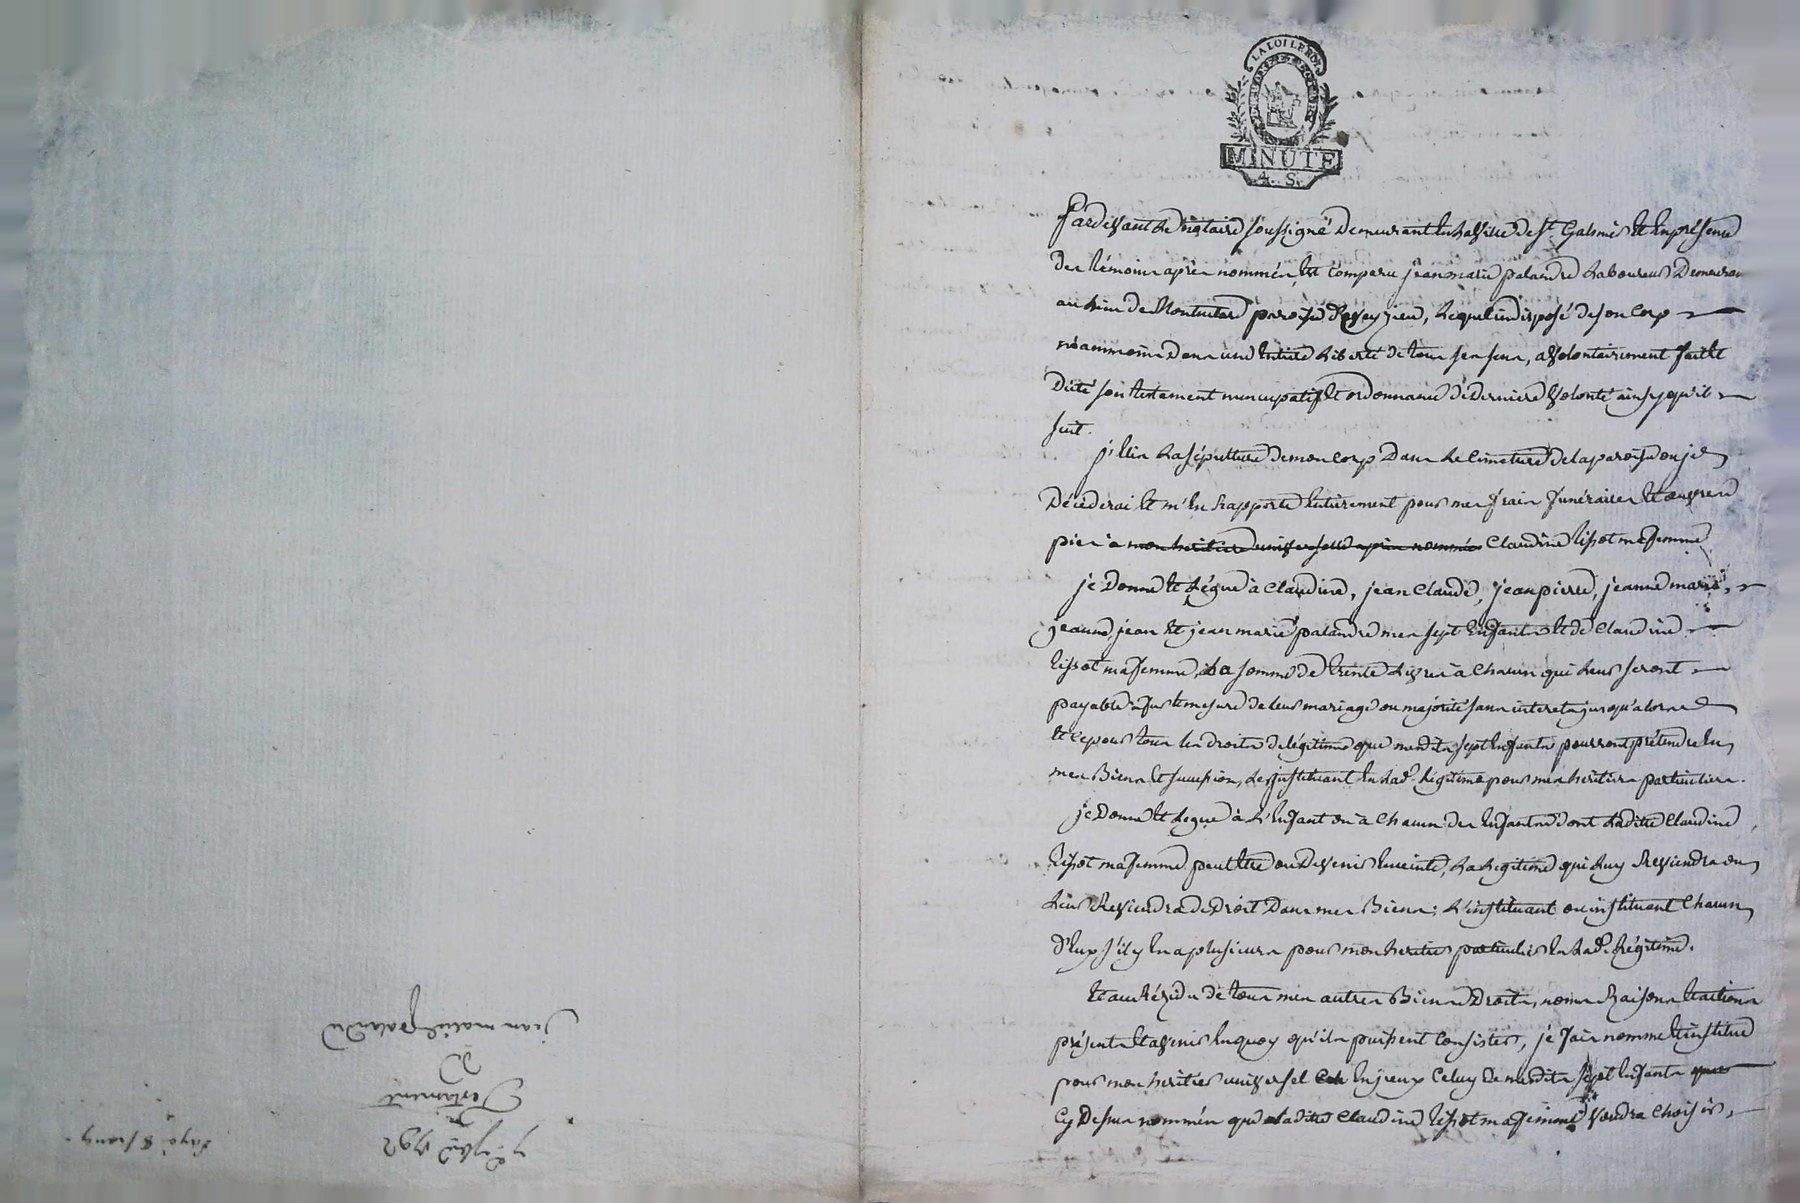 LA LOI LE ROI
MINUTE
4. S.
Pardevant le notaire soussigné demeurant en la ville de St. Galmier et en présence
des témoins après nommés, est comparu jean marie palandre laboureur demeurant
au lieu de paroisse de veyzieu, lequel indisposé de son corps
néanmoins dans une entière liberté de tous ses sens, a volontairement fait et
dicté son testament nuncupatif et ordonnance de dernière volonté ainsy qu'il
suit.
j'élis la sépulture de mon corps dans le cimetiere de la paroisse ou je
décéderai et m'en rapporte entierement pour mes frais funéraires et œuvres
pies à mon héritiere universelle après nommée Claudine tissot ma femme
je donne et légue à claudine, jean claude, jean pierre, jeanne marie,
jeanne, jean et jean marie palandre mes sept enfants et de Claudine
tissot ma femme, la somme de trente livres à chacun qui leur seront
payable à fur et mesure de leur mariage ou majorité sans interets jusqu'alors
et ce pour tous les droits de légitime que mesdits sept enfants pourront prétendre en
mes biens et succession, les instituant en lad. légitime pour mes héritiers particuliers.
je donne et legue à l'enfant ou à chacun des enfants dont ladite Claudine
tissot ma femme peut être ou devenir enceinte, la légitime qui luy reviendra ou
leur reviendra de droit dans mes biens; l'instituant ou instituant chacun
d'eux s'il y en a plusieurs pour mon héritier particulier en lad. légitime.
Et au résidu de tous mes autres biens droits, noms raisons et actions
présents et avenir en quoy qu'ils puissent consister, je fais nomme et institue
pour mon héritier universel celuy de mesdits sept enfants
cy dessus nommés que ladite Claudine tissot ma femme voudra choisir,
7 1792
Testament
de
jean marie palandre
payé 8 francs